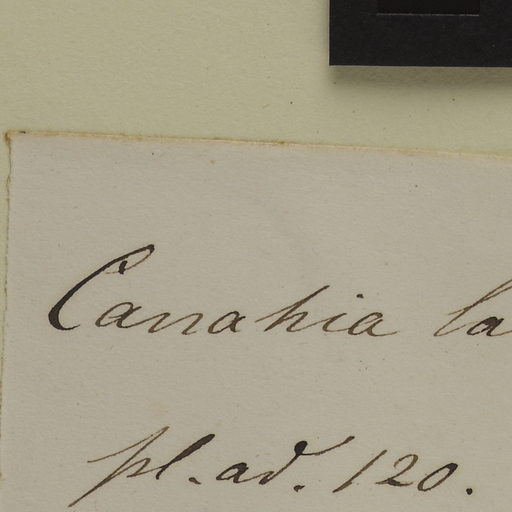 Canahia la
pl. ad. 120.